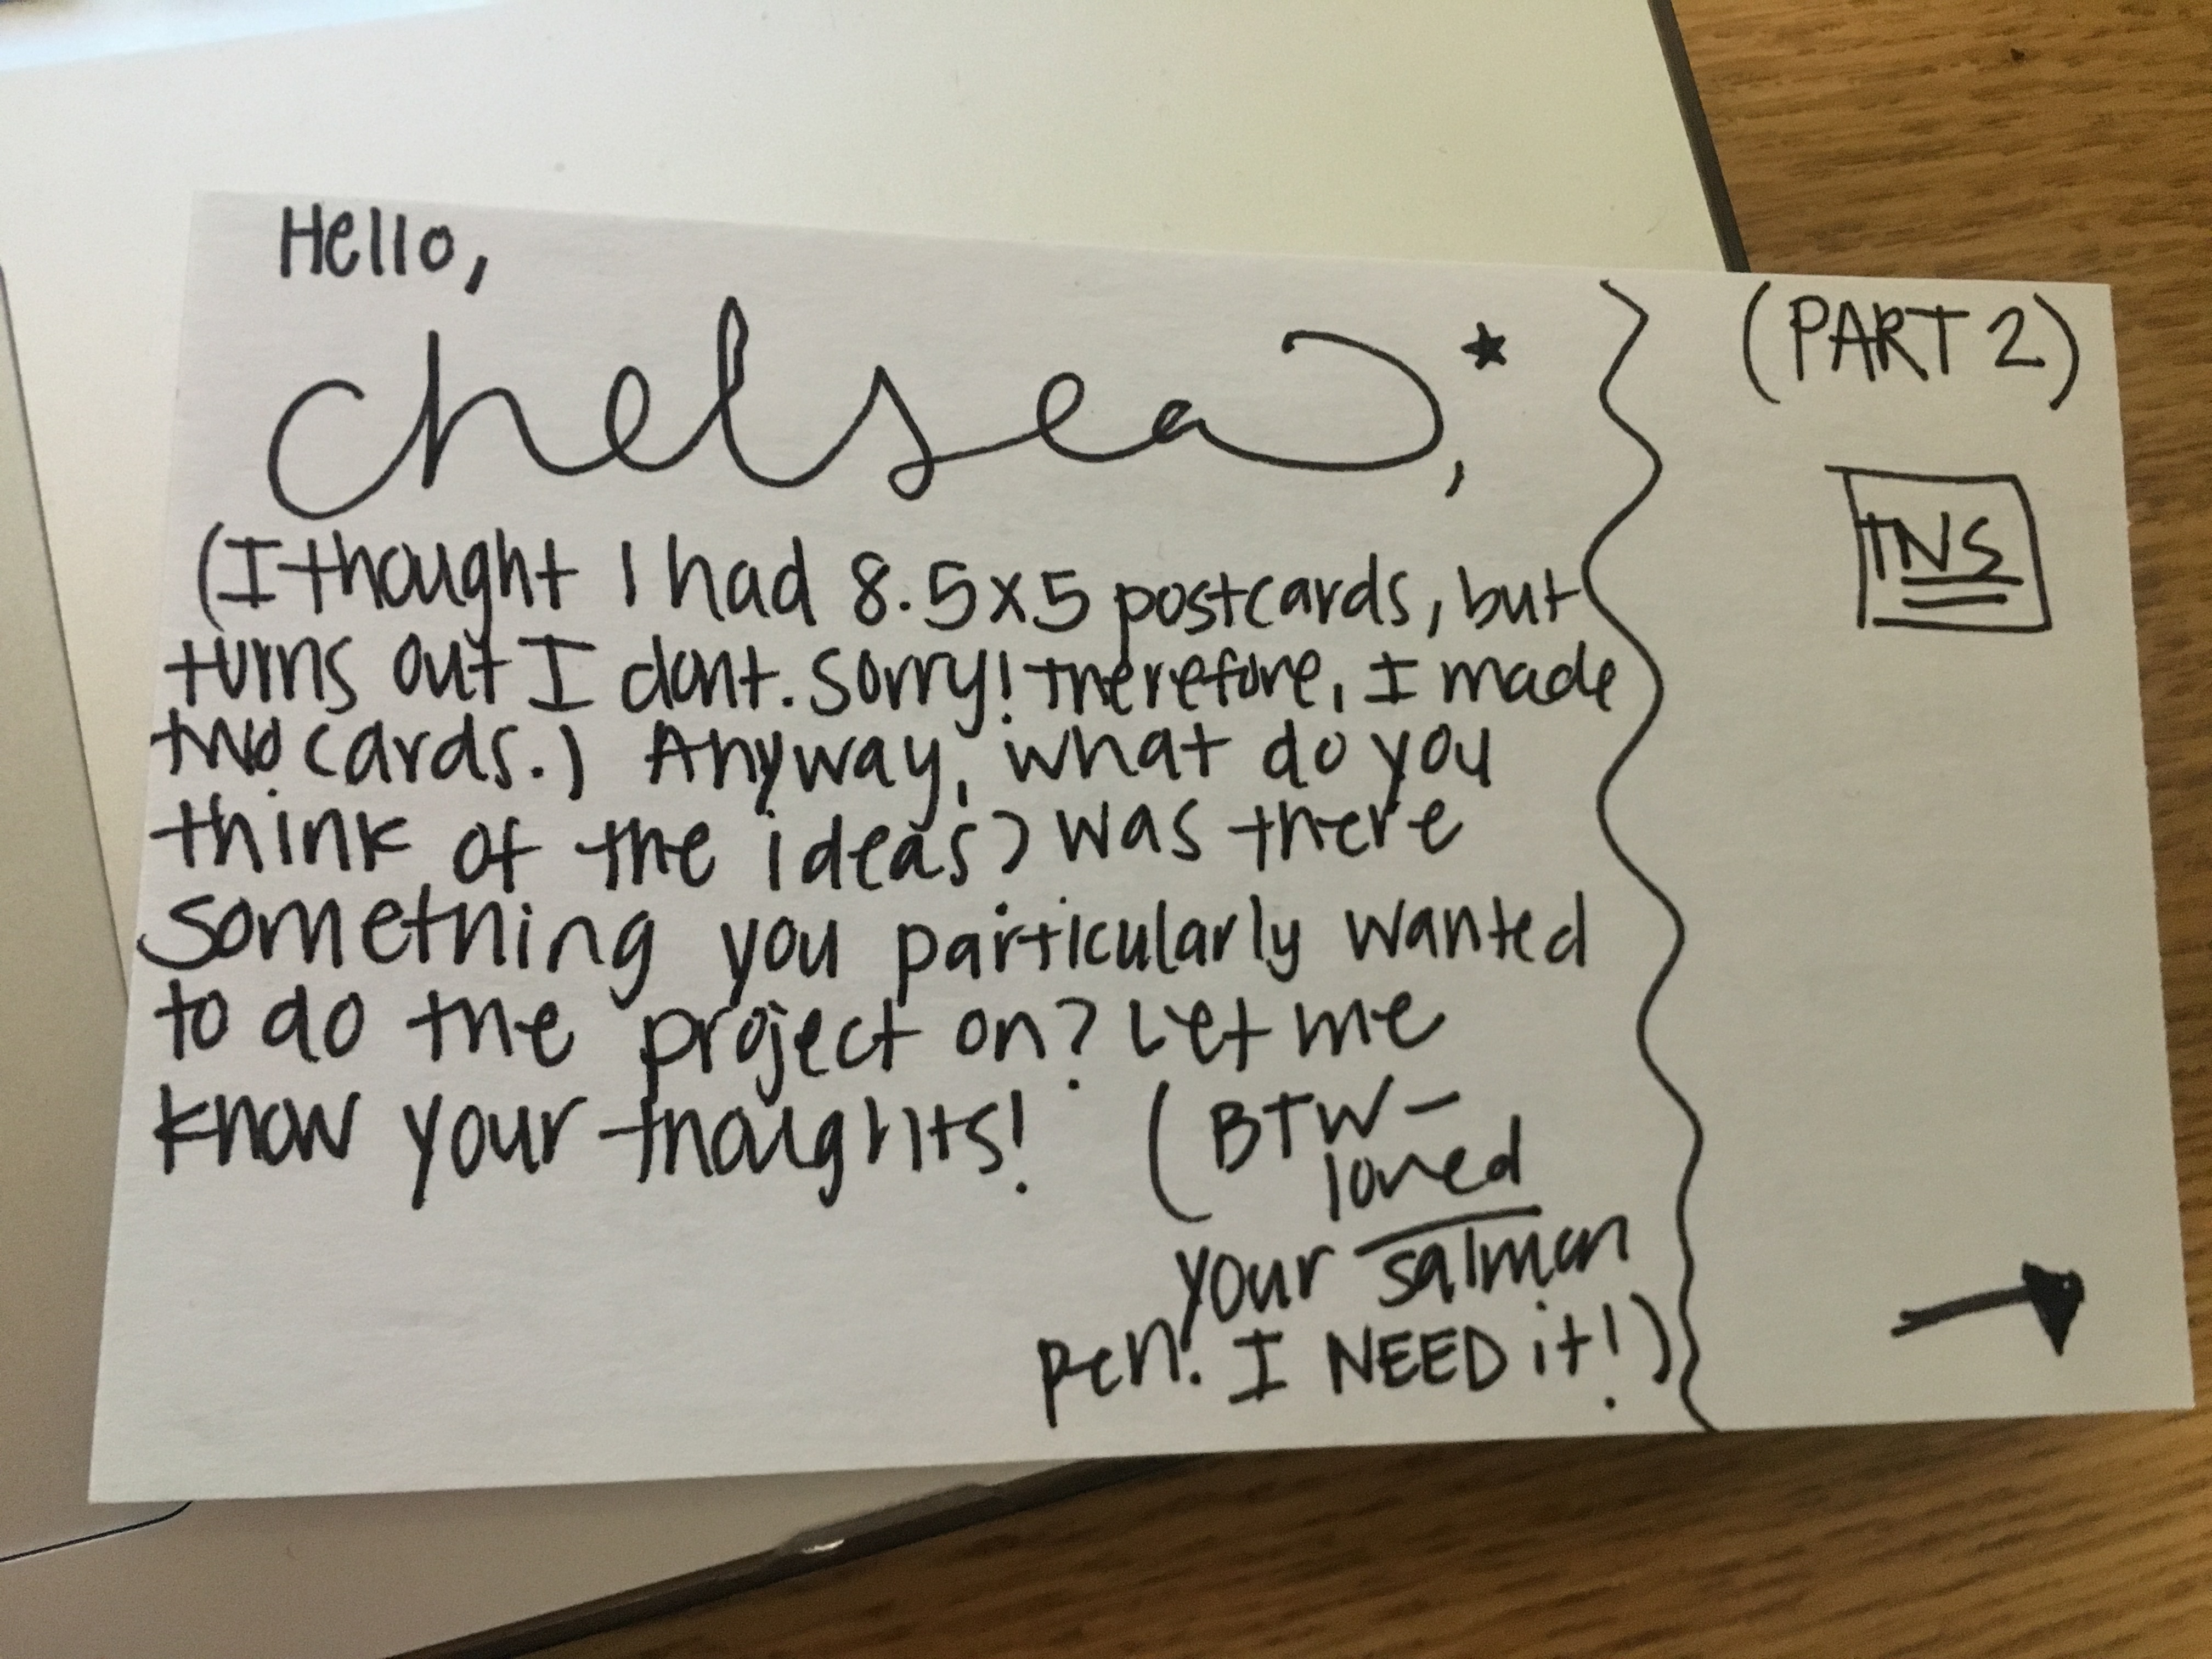 Hello,
Chelsea,
(I thought I had 8.5x5 postcards, but
turns out I dont. Sorry! Therefore, I made
two cards.) Anyway, what do you
think of the ideas? Was there
something you particularly wanted
to do the project on? Let me
know your thoughts!
(BTW-
loved
your salmon
pen. I NEED it!)
(PART 2)
INS